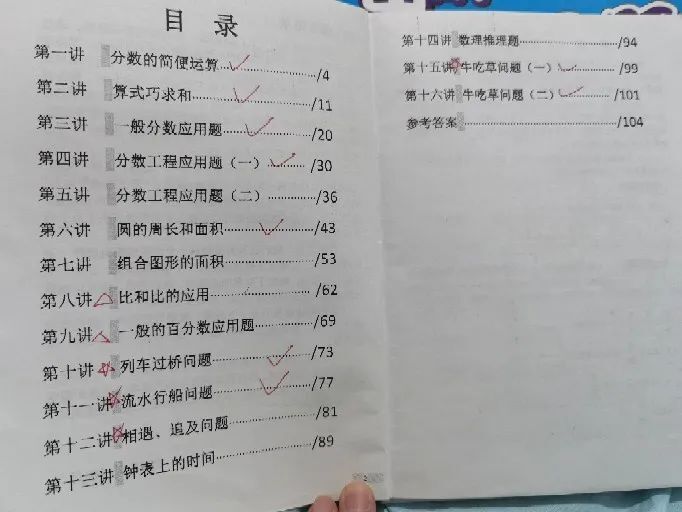 目 录
第一讲 分数的简便运算……………/4
第二讲 算式巧求和……………/11
第三讲 一般分数应用题……………/20
第四讲 分数工程应用题（一）………/30
第五讲 分数工程应用题（二）………/36
第六讲 圆的周长和面积……………/43
第七讲 组合图形的面积……………/53
第八讲 比和比的应用……………/62
第九讲 一般的百分数应用题………/69
第十讲 列车过桥问题……………/73
第十一讲 流水行船问题……………/77
第十二讲 相遇、追及问题……………/81
第十三讲 钟表上的时间……………/89
第十四讲 数理推理题……………/94
第十五讲 牛吃草问题（一）………/99
第十六讲 牛吃草问题（二）………/101
参考答案……………/104